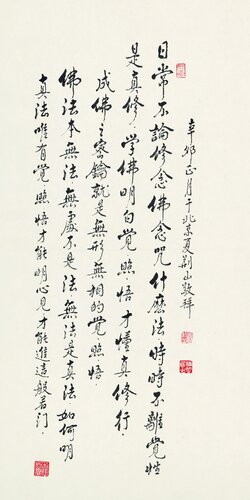 辛卯正月于北京夏荆山敬拜
日常不論修念佛念咒什麼法時時不離覺性
是真修．學佛明白覺照悟才懂真修行．
成佛之密鑰就是無形無相的覺照悟．
佛法本無法無處不是法無法是真法如何明
真法唯有覺照悟才能明心見才能進這般若門．